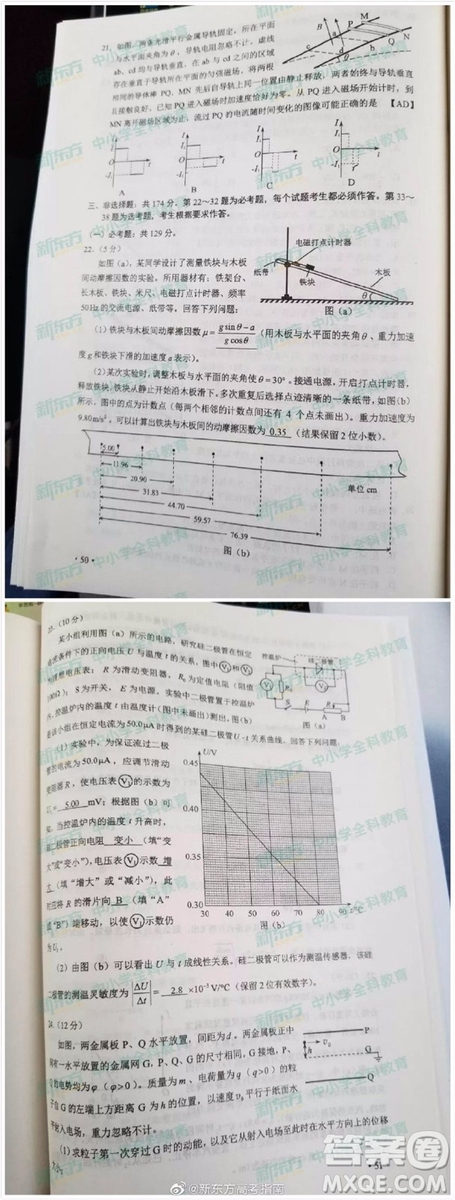 21. 如图，两条光滑平行金属导轨固定，所在平面
与水平面夹角为θ，导轨电阻忽略不计。虚线
ab、cd均与导轨垂直，在ab与cd之间的区域
存在垂直于导轨所在平面的匀强磁场。将两根
相同的导体棒PQ、MN先后自导轨上同一位置由静止释放，两者始终与导轨垂直
且接触良好。已知PQ进入磁场时加速度恰好为零。从PQ进入磁场开始计时，到
MN离开磁场区域为止，流过PQ的电流随时间变化的图像可能正确的是 【AD】
A
B
C
D
三、非选择题：共174分。第22～32题为必考题，每个试题考生都必须作答。第33～
38题为选考题，考生根据要求作答。
（一）必考题：共129分。
22.（5分）
如图（a），某同学设计了测量铁块与木板
间动摩擦因数的实验。所用器材有：铁架台、
长木板、铁块、米尺、电磁打点计时器、频率
50Hz的交流电源，纸带等。回答下列问题：
电磁打点计时器
纸带
木板
铁块
θ
图（a）
（1）铁块与木板间动摩擦因数μ= (g sinθ-a)/(g cosθ) （用木板与水平面的夹角θ、重力加速
度g和铁块下滑的加速度a表示）。
（2）某次实验时，调整木板与水平面的夹角使θ=30°。接通电源，开启打点计时器，
释放铁块，铁块从静止开始沿木板滑下。多次重复后选择点迹清晰的一条纸带，如图（b）
所示。图中的点为计数点（每两个相邻的计数点间还有4个点未画出）。重力加速度为
9.80m/s²，可以计算出铁块与木板间的动摩擦因数为 0.35 （结果保留2位小数）。
5.00
11.96
20.90
31.83
44.70
59.57
76.39
单位 cm
图（b）
· 50 ·
（10分）
某小组利用图（a）所示的电路，研究硅二极管在恒定
电流条件下的正向电压U与温度t的关系，图中V₁和V₂
为理想电压表；R为滑动变阻器，R₀为定值电阻（阻值
100Ω）；S为开关，E为电源。实验中二极管置于控温炉
内，控温炉内的温度t由温度计（图中未画出）测出。图（b）
是该小组在恒定电流为50.0μA时得到的某硅二极管U-t关系曲线。回答下列问题：
控温炉
图（a）
（1）实验中，为保证流过二极
管的电流为50.0μA，应调节滑动
变阻器R，使电压表V₁的示数为
U₁= 5.00 mV；根据图（b）可
知，当控温炉内的温度t升高时，
硅二极管正向电阻 变小 （填“变
大”或“变小”），电压表V₁示数 增
大（填“增大”或“减小”），此
时应将R的滑片向 B （填“A”
或“B”）端移动，以使V₁示数仍
为U₁。
U/V
0.45
0.40
0.35
0.30
30 40 50 60 70 80 90 t/℃
图（b）
（2）由图（b）可以看出U与t成线性关系。硅二极管可以作为测温传感器，该硅
二极管的测温灵敏度为|ΔU/Δt|= 2.8 ×10⁻³ V/℃（保留2位有效数字）。
24.（12分）
如图，两金属板P、Q水平放置，间距为d。两金属板正中
间有一水平放置的金属网G，P、Q、G的尺寸相同。G接地，P、
Q的电势均为φ（φ>0）。质量为m、电荷量为q（q>0）的粒
子自G的左端上方距离G为h的位置，以速度v₀平行于纸面水
平射入电场，重力忽略不计。
P
h v₀
G
Q
（1）求粒子第一次穿过G时的动能，以及它从射入电场至此时在水平方向上的位移
大小；
51 ·
新东方 中小学全科教育
@新东方高考指南
答案圈
MXQE.COM